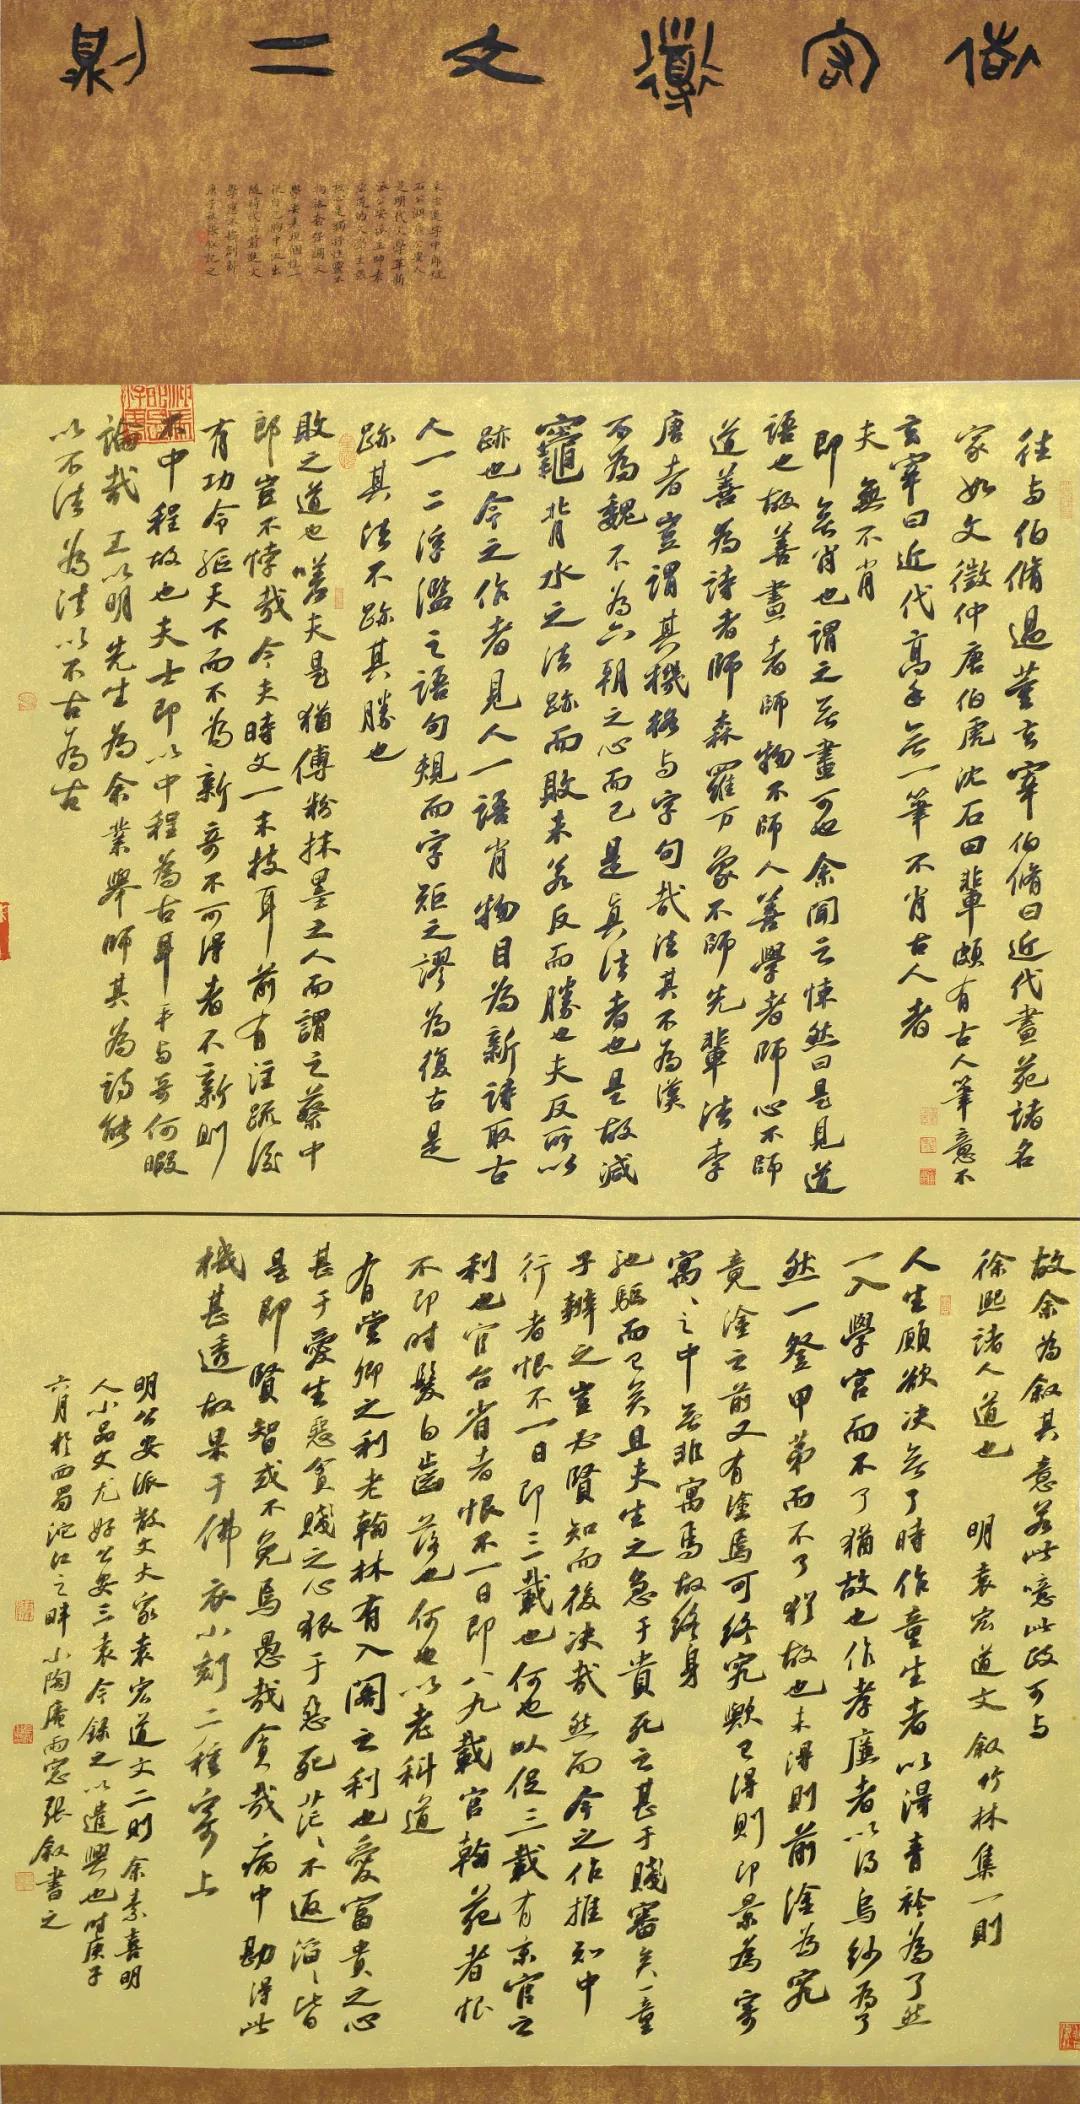 袁宏道文二則
袁宏道字中郎號
石公湖廣公安人
是明代文學革新
派公安派主帥袁
宏道的文學主張
核心是獨抒性靈不
拘格套
從自己胸中流出
隨時代而前進文
學應不斷創新
往与伯脩過董玄宰伯脩曰近代畫苑諸名
家如文徵仲唐伯虎沈石田輩頗有古人筆意不
玄宰曰近代高手無一筆不肖古人者
夫無不肖
即無肖也謂之無畫可也余聞之悚然曰是見道
語也故善畫者師物不師人善學者師心不師
道善為詩者師森羅万象不師先輩法李
唐者豈謂其機格与字句哉法其不為漢
不為魏不為六朝之心而已是真法者也是故減
竈背水之法跡而敗未若反而勝也夫反所以
跡也今之作者見人一語肖物目為新詩取古
人一二浮濫之語句規而字矩之謬為復古是
跡其法不跡其勝也
敗之道也嗟夫是猶傅粉抹墨之人而謂之蔡中
郎豈不悖哉今夫時文一末技耳前有注疏後
有功令驅天下而不為新奇不可得者不新則
不中程故也夫士即以中程為古耳平与奇何暇
論哉王以明先生為余業舉師其為詩能
以不法為法以不古為古
故余為叙其意若此噫此政可与
徐熙諸人道也 明袁宏道文叙竹林集一則
人生願欲決無了時作童生者以得青衿為了然
一入學宮而不了猶故也作孝廉者以得烏紗為了
然一登甲第而不了猶故也未得則前塗為究
竟塗之前又有塗焉可終究歟已得則即景為寄
寓寓之中無非寓焉故終身
馳驅而已矣且夫生之急于貴死之甚于賤審矣一童
子辨之豈必賢知而後决哉然而今之作推知中
行者恨不一日即三載也何也以促三載有京官之
利也官台省者恨不一日即八九載官翰苑者恨
不即时髮白齒落也何也以老科道
有堂卿之利老翰林有入閣之利也愛富貴之心
甚于愛生惡貧賤之心狠于惡死茫茫不返滔滔皆
是即賢智或不免焉愚哉貪哉病中勘得此
機甚透故果于佛衣小刻二種寄上
明公安派散文大家袁宏道文二則余素喜明
人小品文尤好公安三袁今録之以遣興也时庚子
六月於西蜀沱江之畔小陶庵雨窓張叙書之